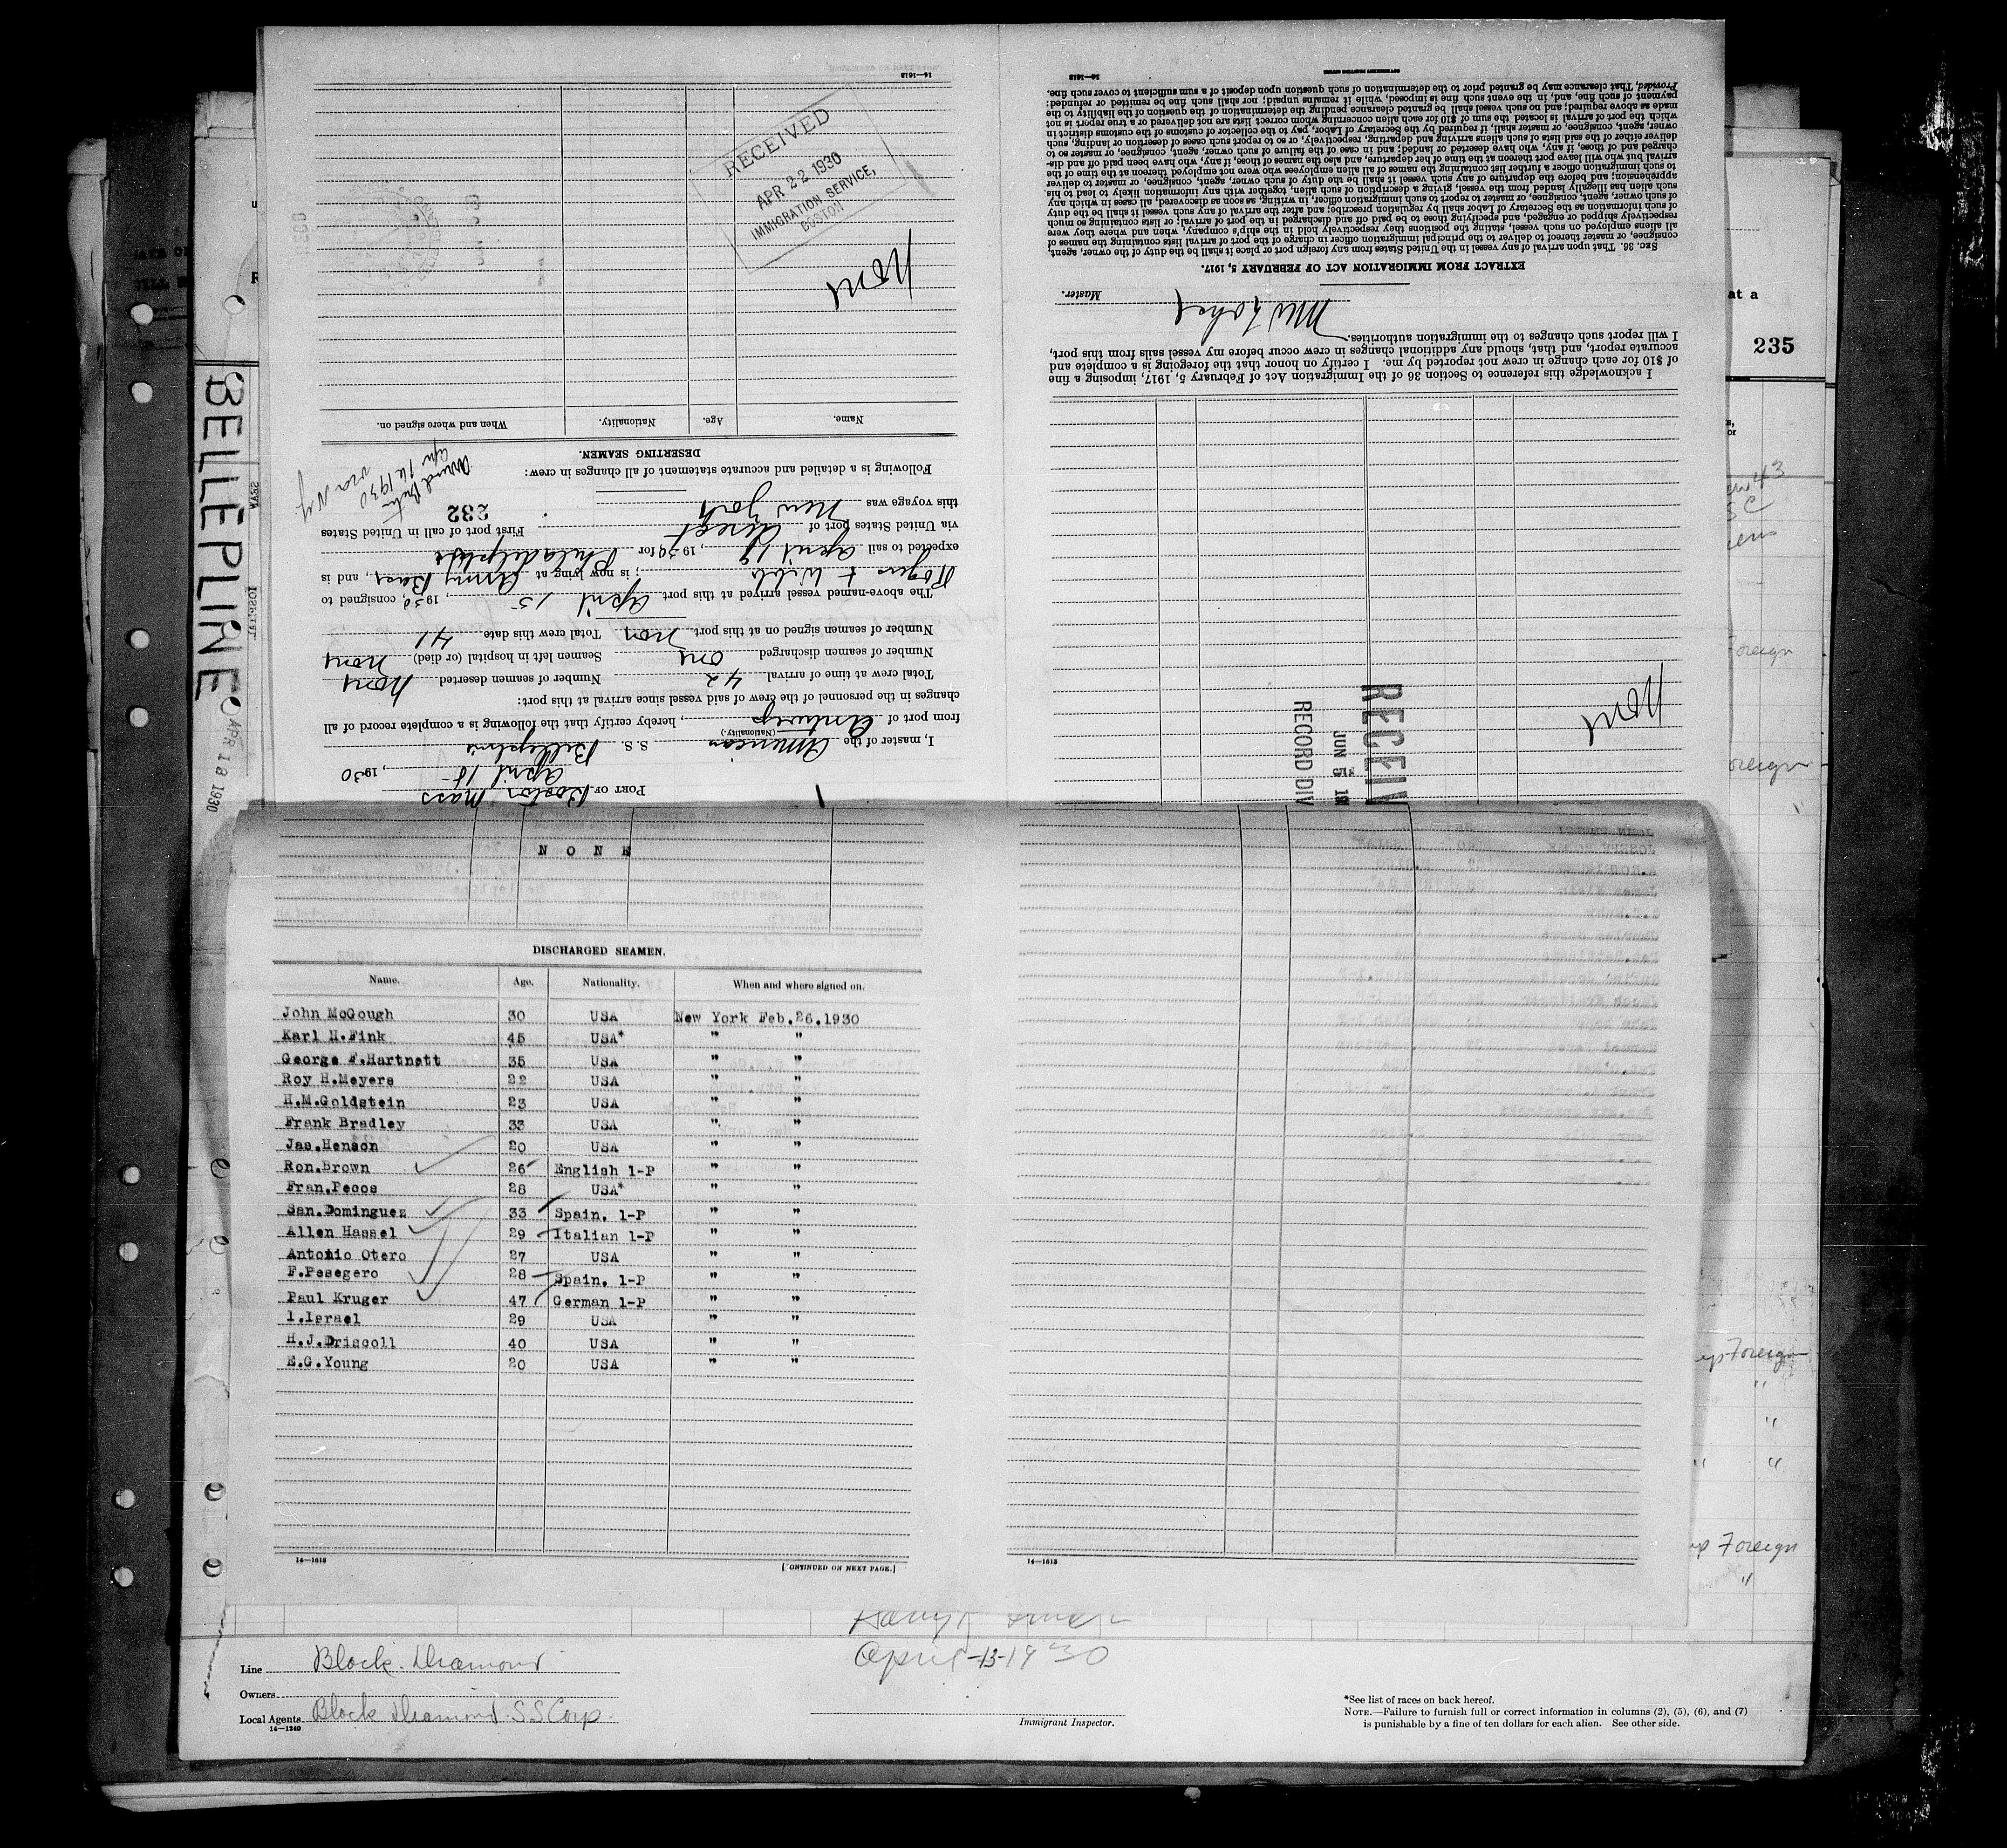 14—1618
RECEIVED
APR 22 1930
IMMIGRATION SERVICE,
BOSTON
None
Name. Age. Nationality. When and where signed on.
DESERTING SEAMEN.
Following is a detailed and accurate statement of all changes in crew:
this voyage was New York
via United States port of direct First port of call in United States
232
expected to sail April 18, 1930 for Philadelphia
Rogers & Webb; is now lying at Army Base, and is
The above-named vessel arrived at this port April 15, 1930, consigned to
Number of seamen signed on at this port non Total crew this date 41
Number of seamen discharged one Seamen left in hospital (or died) none
Total crew at time of arrival 42 Number of seamen deserted None
changes in the personnel of the crew of said vessel since arrival at this port:
from port of Antwerp, hereby certify that the following is a complete record of all
I, master of the American S. S. Bellepline
(Nationality.)
April 18, 1930
PORT OF Boston Mass
14—1618
GOVERNMENT PRINTING OFFICE
SEC. 36. That upon arrival of any vessel in the United States from any foreign port or place it shall be the duty of the owner, agent,
consignee, or master thereof to deliver to the principal immigration officer in charge of the port of arrival lists containing the names of
all aliens employed on such vessel, stating the positions they respectively hold in the ship's company, when and where they were
respectively shipped or engaged, and specifying those to be paid off and discharged in the port of arrival; or lists containing so much
of such information as the Secretary of Labor shall by regulation prescribe; and after the arrival of any such vessel it shall be the duty
of such owner, agent, consignee, or master to report to such immigration officer, in writing, as soon as discovered, all cases in which any
such alien has illegally landed from the vessel, giving a description of such alien, together with any information likely to lead to his
apprehension; and before the departure of any such vessel it shall be the duty of such owner, agent, consignee, or master to deliver
to such immigration officer a further list containing the names of all alien employees who were not employed thereon at the time of the
arrival but who will leave port thereon at the time of her departure, and also the names of those, if any, who have been paid off and dis-
charged and of those, if any, who have deserted or landed; and in case of the failure of such owner, agent, consignee, or master so to
deliver either of the said lists of such aliens arriving and departing, respectively, or so to report such cases of desertion or landing, such
owner, agent, consignee, or master shall, if required by the Secretary of Labor, pay to the collector of customs of the customs district in
which the port of arrival is located the sum of $10 for each alien concerning whom correct lists are not delivered or a true report is not
made as above required; and no such vessel shall be granted clearance pending the determination of the question of the liability to the
payment of such fine, and, in the event such fine is imposed, while it remains unpaid; nor shall such fine be remitted or refunded:
Provided, That clearance may be granted prior to the determination of such question upon deposit of a sum sufficient to cover such fine.
EXTRACT FROM IMMIGRATION ACT OF FEBRUARY 5, 1917.
Master.
I acknowledge this reference to Section 36 of the Immigration Act of February 5, 1917, imposing a fine
of $10 for each change in crew not reported by me. I certify on honor that the foregoing is a complete and
accurate report, and that, should any additional changes in crew occur before my vessel sails from this port,
I will report such changes to the immigration authorities.
None
RECEIV
JUN
RECORD DIV
at a
235
BELLEPLINE
APR 18 1930
NONE
DISCHARGED SEAMEN.
Name. Age. Nationality. When and where signed on.
John McGough 30 USA New York Feb.26.1930
Karl H.Fink 45 USA* " "
George F.Hartnett 35 USA " "
Roy H.Meyers 22 USA " "
H.M.Goldstein 23 USA " "
Frank Bradley 33 USA " "
Jas.Henson 20 USA " "
Ron.Brown 26 English 1-P " "
Fran.Pecos 28 USA* " "
San.Dominguez 33 Spain. 1-P " "
Allen Hassel 29 Italian 1-P " "
Antonio Otero 27 USA " "
F.Pesegero 28 Spain. 1-P " "
Paul Kruger 47 German 1-P " "
I.Israel 29 USA " "
H.J.Driscoll 40 USA " "
E.G.Young 20 USA " "
14—1618
[CONTINUED ON NEXT PAGE.]
14—1618
Foreign
Foreign
April-13-1930
Line Black Diamond
Owners
Local Agents Black Diamond SS Corp.
14—1240
Immigrant Inspector.
*See list of races on back hereof.
NOTE.—Failure to furnish full or correct information in columns (2), (5), (6), and (7)
is punishable by a fine of ten dollars for each alien. See other side.